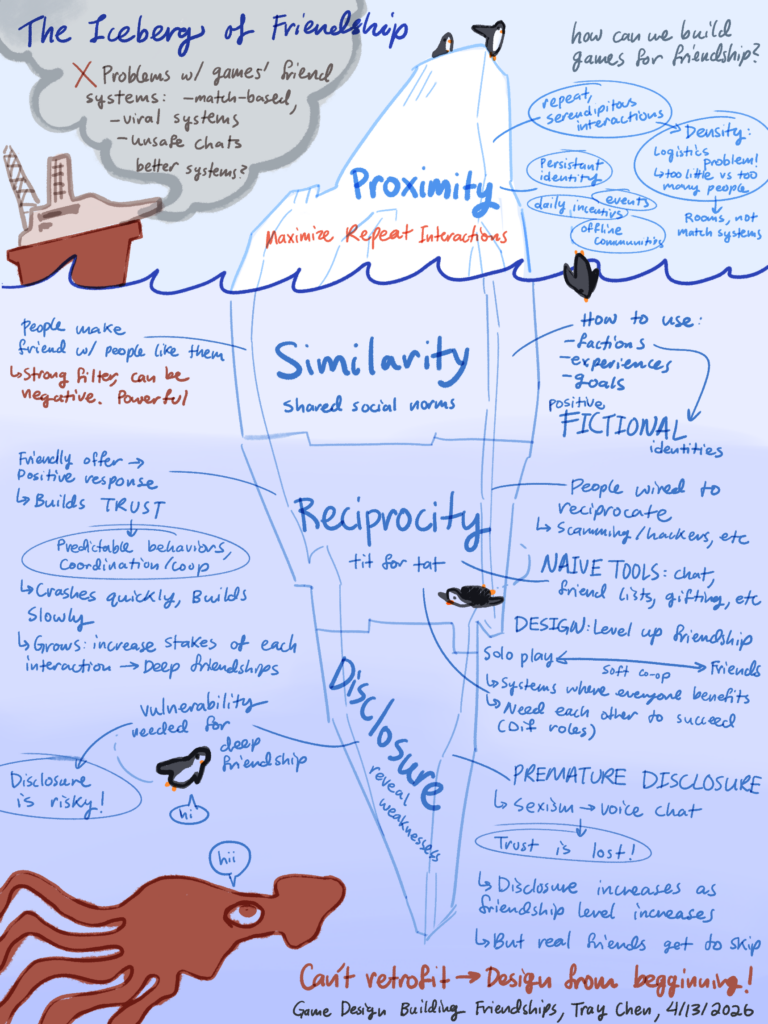 The Iceberg of Friendship
X Problems w/ games' friend
systems: -match-based,
-viral systems
-unsafe chats
better systems?
how can we build
games for friendship?
repeat,
serendipitous
interactions
Density:
Logistics
problem!
↳too little vs too
many people
Rooms, not
match systems
Persistant
identity
events
daily incentivs
offline
communitis
Proximity
Maximize Repeat Interactions
People make
friend w/ people like them
↳Strong filter, can be
negative. Powerful
Similarity
Shared social norms
How to use:
-factions
-experiences
-goals
positive
FICTIONAL
identities
Friendly offer →
Positive response
↳ Builds TRUST
Predictable behaviors,
Coordination/coop
↳Crashes quickly, Builds
Slowly
↳Grows: increase stakes of each
interaction → Deep friendships
Reciprocity
tit for tat
People wired to
reciprocate
↳ Scamming/hackers, etc
NAIVE TOOLS: chat,
friend lists, gifting, etc
DESIGN: Level up friendship
Solo play ↔ Friends
soft co-op
↳Systems where everyone benefits
↳Need each other to succeed
(Dif roles)
vulnerability
needed for
deep
friendship
Disclosure
is risky!
hi
hii
Disclosure
reveal
weaknesses
PREMATURE DISCLOSURE
↳ Sexism → voice chat
Trust is lost!
↳Disclosure increases as
friendship level increases
↳But real friends get to skip
Can't retrofit → Design from begginning!
Game Design Building Friendships, Tray Chen, 4/13/2026